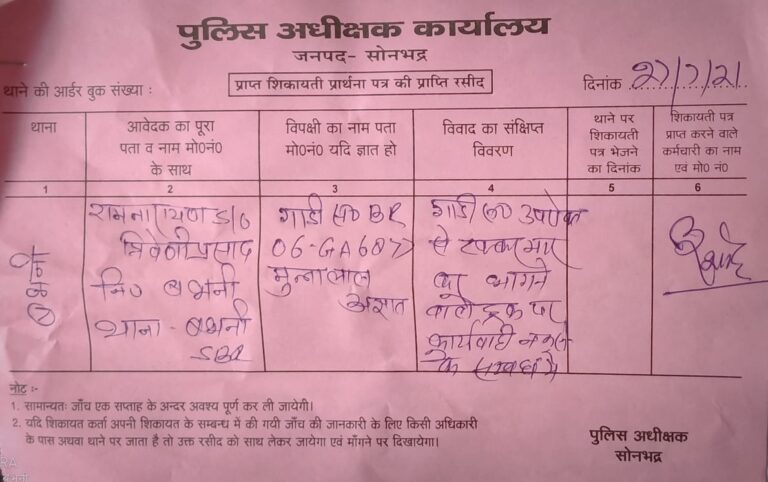 पुलिस अधीक्षक कार्यालय
जनपद- सोनभद्र
प्राप्त शिकायती प्रार्थना पत्र की प्राप्ति रसीद
थाने की आर्डर बुक संख्या :
दिनांक 27/7/21
थाना
आवेदक का पूरा
पता व नाम मो0नं0
के साथ
विपक्षी का नाम पता
मो0नं0 यदि ज्ञात हो
विवाद का संक्षिप्त
विवरण
थाने पर
शिकायती
पत्र भेजने
का दिनांक
शिकायती पत्र
प्राप्त करने वाले
कर्मचारी का नाम
एवं मो0 नं0
1 2 3 4 5 6
बभनी
रामनारायण S/o
त्रिवेणी प्रसाद
नि0 बभनी
थाना - बभनी
SBR
गाडी सं0 BR
06-GA687
मुन्नालाल
अज्ञात
गाडी सं0 उपरोक्त
से टक्कर मार
कर भागने
वाले ट्रक पर
कार्यवाही न करने
के सम्बन्ध में
नोट :-
1. सामान्यतः जाँच एक सप्ताह के अन्दर अवश्य पूर्ण कर ली जायेगी।
2. यदि शिकायत कर्ता अपनी शिकायत के सम्बन्ध में की गयी जाँच की जानकारी के लिए किसी अधिकारी
के पास अथवा थाने पर जाता है तो उक्त रसीद को साथ लेकर जायेगा एवं माँगने पर दिखायेगा।
पुलिस अधीक्षक
सोनभद्र